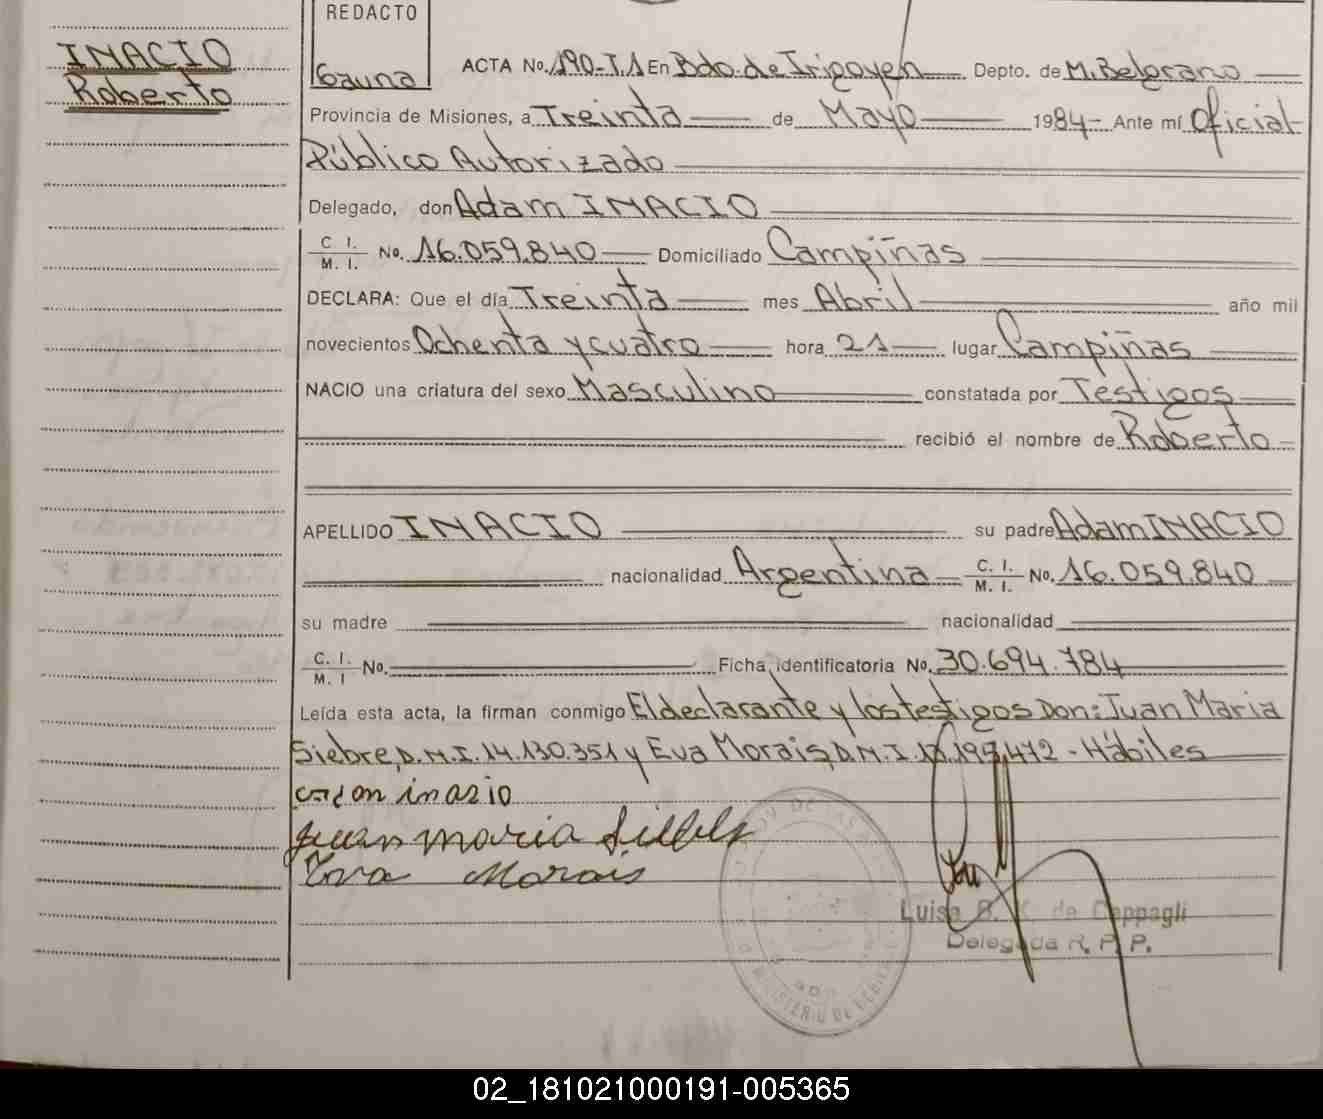 INACIO
Roberto
REDACTO
Gauna
ACTA No. 190-T.1 En Bdo. de Irigoyen Depto. de M. Belgrano
Provincia de Misiones, a Treinta de Mayo 1984- Ante mí Oficial
Público Autorizado
Delegado, don Adam INACIO
C. I. M. I. No. 16.059.840 Domiciliado Campiñas
DECLARA: Que el día Treinta mes Abril año mil
novecientos Ochenta y cuatro hora 21 lugar Campiñas
NACIO una criatura del sexo Masculino constatada por Testigos
recibió el nombre de Roberto
APELLIDO INACIO su padre Adam INACIO
nacionalidad Argentina C. I. M. I. No. 16.059.840
su madre nacionalidad
C. I. M. I No. Ficha identificatoria No. 30.694.784
Leída esta acta, la firman conmigo El declarante y los testigos Don: Juan Maria
Siebre, D.N.I. 14.130.351 y Eva Morais, D.N.I. - Hábiles
inasio
Juan maria
Eva Morais
Luisa B. K. de Ceppagli
Delegada R. P. P.
MINISTERIO DE GOBIERNO
02_181021000191-005365